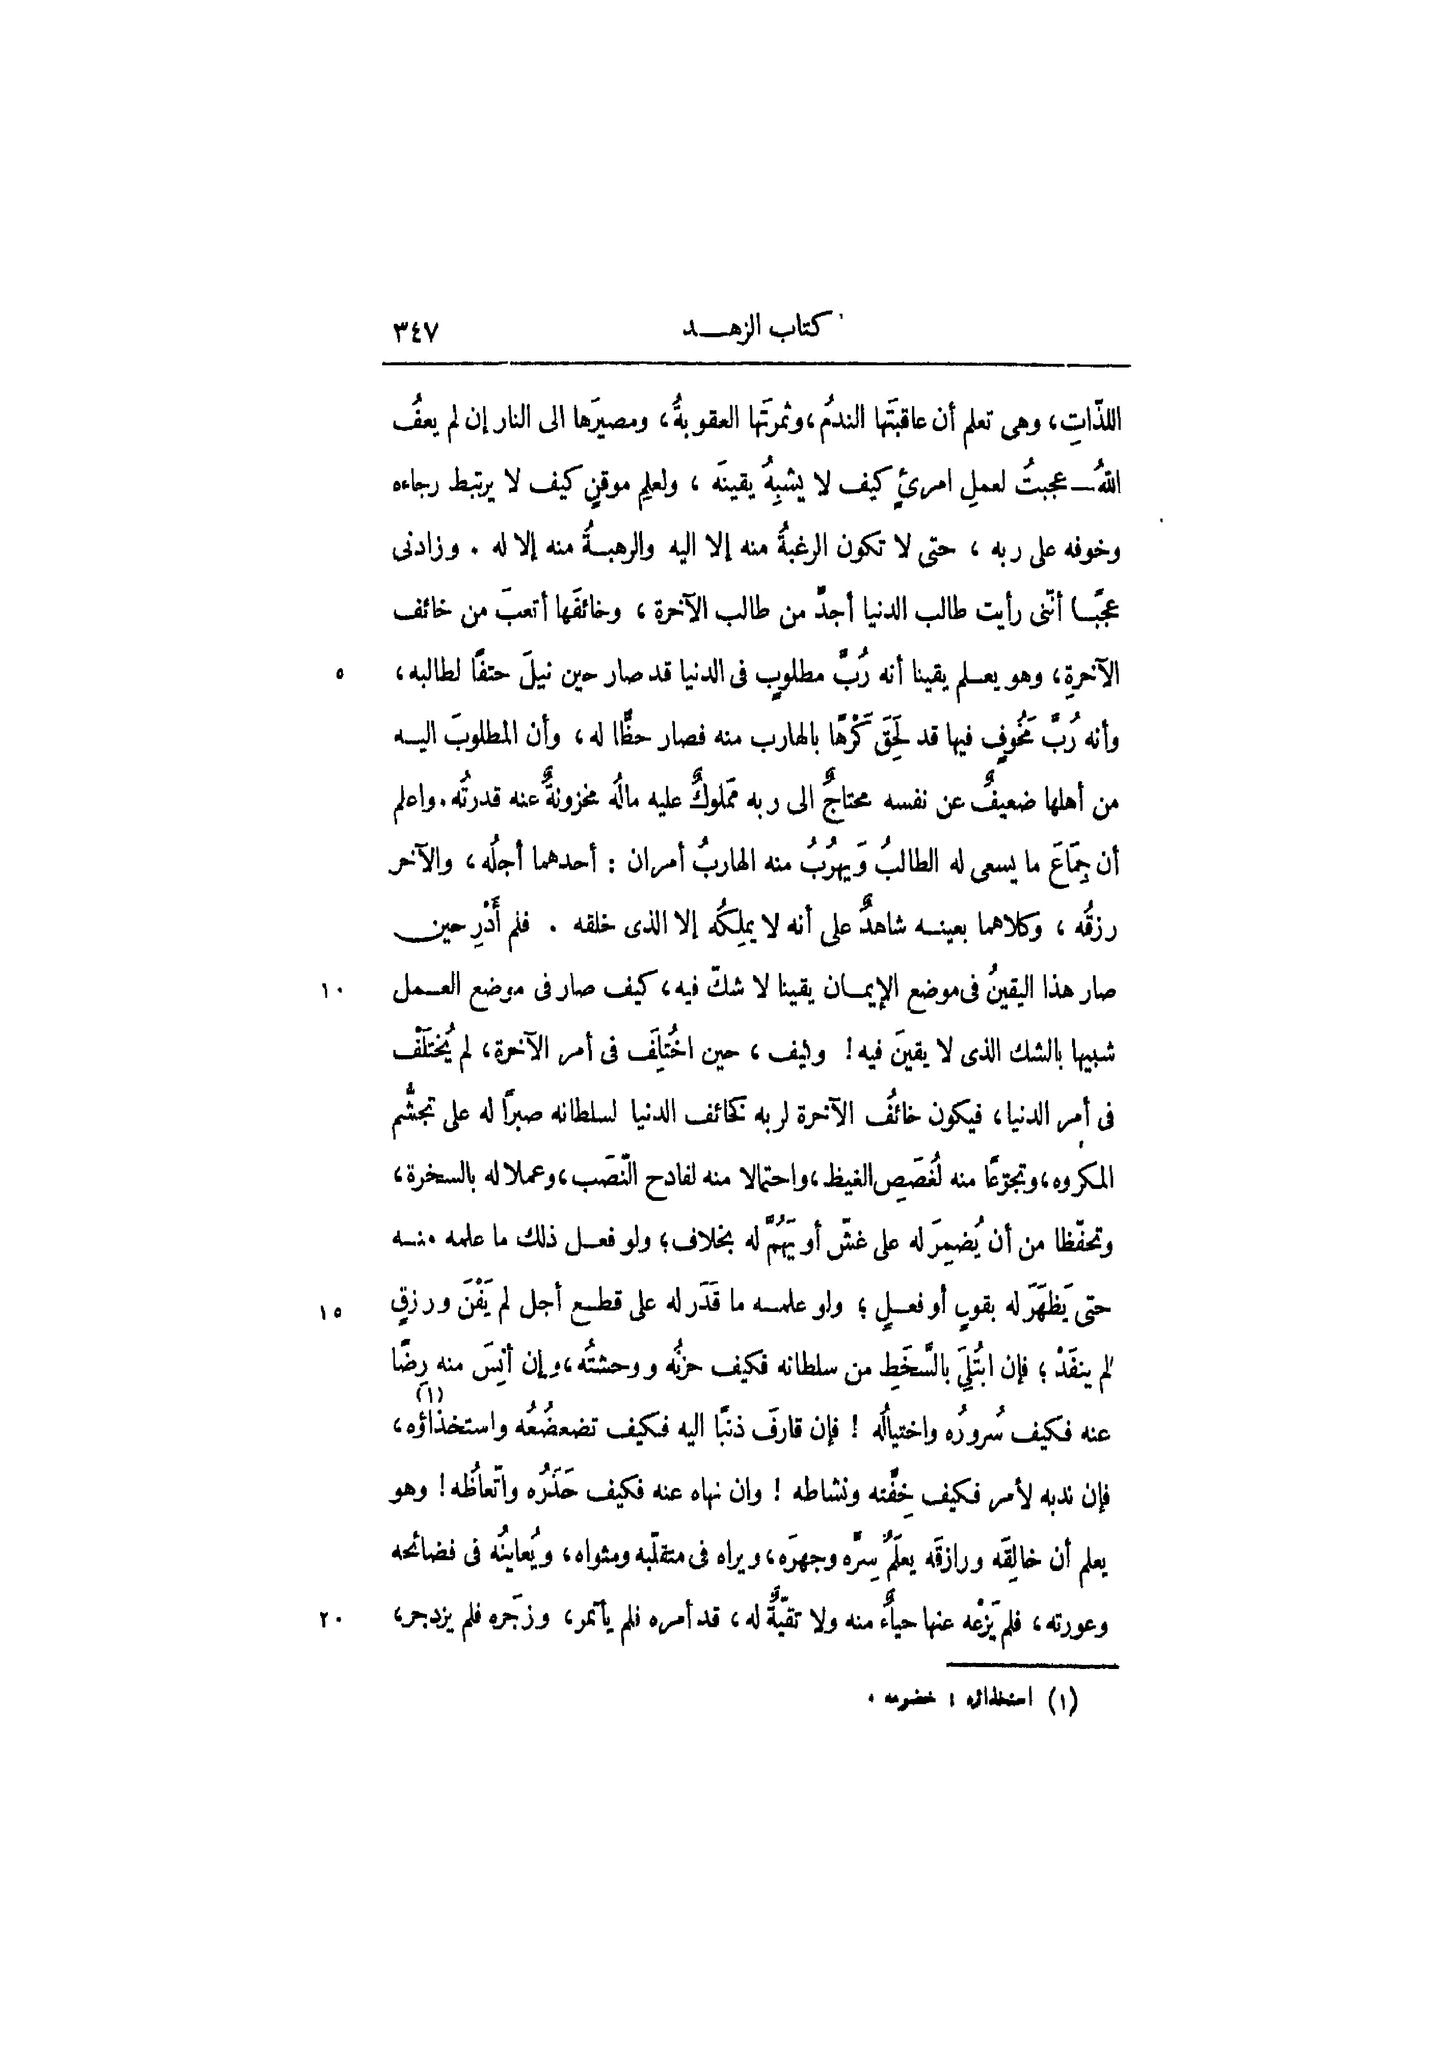 كتاب الزهـــد ٣٤٧
اللذّاتِ، وهى تعلم أن عاقبَتَها الندمُ، وثمرتَها العقوبةُ، ومصيرَها الى النار إن لم يعفُ
اللهُ — عجبتُ لعملِ امرئٍ كيف لا يشبِهُ يقينَه ، ولعلِم موقنٍ كيف لا يرتبط رجاءه
وخوفه على ربه ، حتى لا تكون الرغبةُ منه إلا اليه والرهبـةُ منه إلا له . وزادنى
عجَبًـا أنّنى رأيت طالب الدنيا أجدَّ من طالب الآخرة ، وخائفَها أتعبَ من خائف
الآخرةِ، وهو يعـلم يقينا أنه رُبَّ مطلوبٍ فى الدنيا قد صار حين نيلَ حتفًا لطالبه، ٥
وأنه رُبَّ مَخُوفٍ فيها قد لَحِقَ كَرْهًا بالهارب منه فصار حظًّا له، وأن المطلوبَ اليـه
من أهلها ضعيفٌ عن نفسه محتاجٌ الى ربه مَملوكٌ عليه مالُه مخزونةٌ عنه قدرتُه. واعلم
أن جِمَاعَ ما يسعى له الطالبُ وَيهرُبُ منه الهاربُ أمران : أحدهما أجلُه، والآخر
رزقُه ، وكلاهما بعينـه شاهدٌ على أنه لا يملِكُه إلا الذى خلقه . فلم أَدْرِ حين
صار هذا اليقينُ فى موضع الإيمـان يقينا لا شكّ فيه، كيف صار فى موضع العـمل ١٠
شبيها بالشك الذى لا يقينَ فيه! وكيف ، حين اختُلِفَ فى أمر الآخرة، لم يُختَلَفْ
فى أمر الدنيا، فيكون خائفُ الآخرة لربه كخائف الدنيا لسلطانه صبرًا له على تجشُّم
المكروه، وتجرّعًا منه لغُصَصِ الغيظ، واحتمالا منه لفادح النّصَب، وعملا له بالسخرة،
وتحفّظا من أن يُضمِرَ له على غشّ أو يَهُمَّ له بخلاف؛ ولو فعـل ذلك ما علمه منـه
حتى يَظهَرَ له بقولٍ أو فعـلٍ ؛ ولو علمـه ما قَدَر له على قطـع أجل لم يَفْنَ ورزقٍ ١٥
لم ينفَدْ ؛ فإن ابتُلِىَ بالسَّخَطِ من سلطانه فكيف حزنُه ووحشتُه، وإن أنِسَ منه رِضًا
عنه فكيف سُرورُه واختيالُه ! فإن قارفَ ذنبًا اليه فكيف تضعضُعُه واستخذاؤه(١)،
فإن ندبه لأمر فكيف خِفّته ونشاطه ! وان نهاه عنه فكيف حَذَرُه واتّعاظُه! وهو
يعلم أن خالِقَه ورازقَه يعلَمُ سِرَّه وجهرَه، ويراه فى متقلّبه ومثواه، ويُعاينُه فى فضائحه
وعورته، فلم يَزَعْه عنها حياءٌ منه ولا تقيّةٌ له، قد أمره فلم يأتمر، وزجَره فلم يزدجر، ٢٠
(١) استخذاؤه : خضوعه .